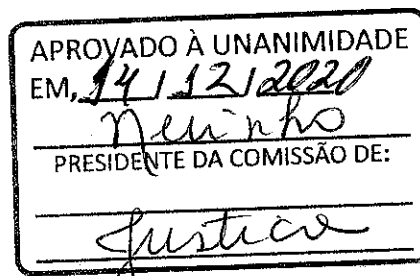 APROVADO À UNANIMIDADE
EM, 14 / 12 / 2020
Neninho
PRESIDENTE DA COMISSÃO DE:
Justiça